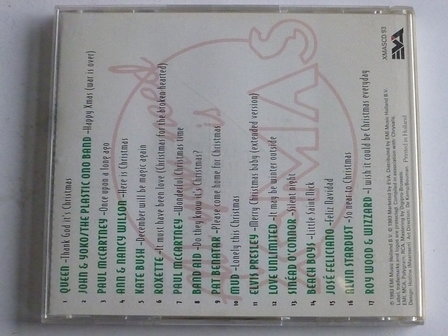 need
is
XMAS
1 QUEEN -Thank God it's Christmas
2 JOHN & YOKO/THE PLASTIC ONO BAND -Happy Xmas (war is over)
3 PAUL McCARTNEY -Once upon a long ago
4 ANN & NANCY WILSON -Here is Christmas
5 KATE BUSH -December will be magic again
6 ROXETTE -It must have been love (Christmas for the broken hearted)
7 PAUL McCARTNEY -Wonderful Christmas time
8 BAND AID -Do they know it's Christmas?
9 PAT BENATAR -Please come home for Christmas
10 MUD -Lonely this Christmas
11 ELVIS PRESLEY -Merry Christmas baby (extended version)
12 LOVE UNLIMITED -It may be winter outside
13 SINÉAD O'CONNOR -Silent night
14 BEACH BOYS -Little Saint Nick
15 JOSÉ FELICIANO -Feliz Navidad
16 ALVIN STARDUST -So near to Christmas
17 ROY WOOD & WIZZARD -I wish it could be Christmas everyday
XMASCD 93
EVA
© 1993 EMI Music Holland B.V. ℗ 1993 Marketed by EVA. Distributed by EMI Music Holland B.V.
EMI, MCA, Polygram, RCA,
in association with: Chrysalis.
Printed in Holland